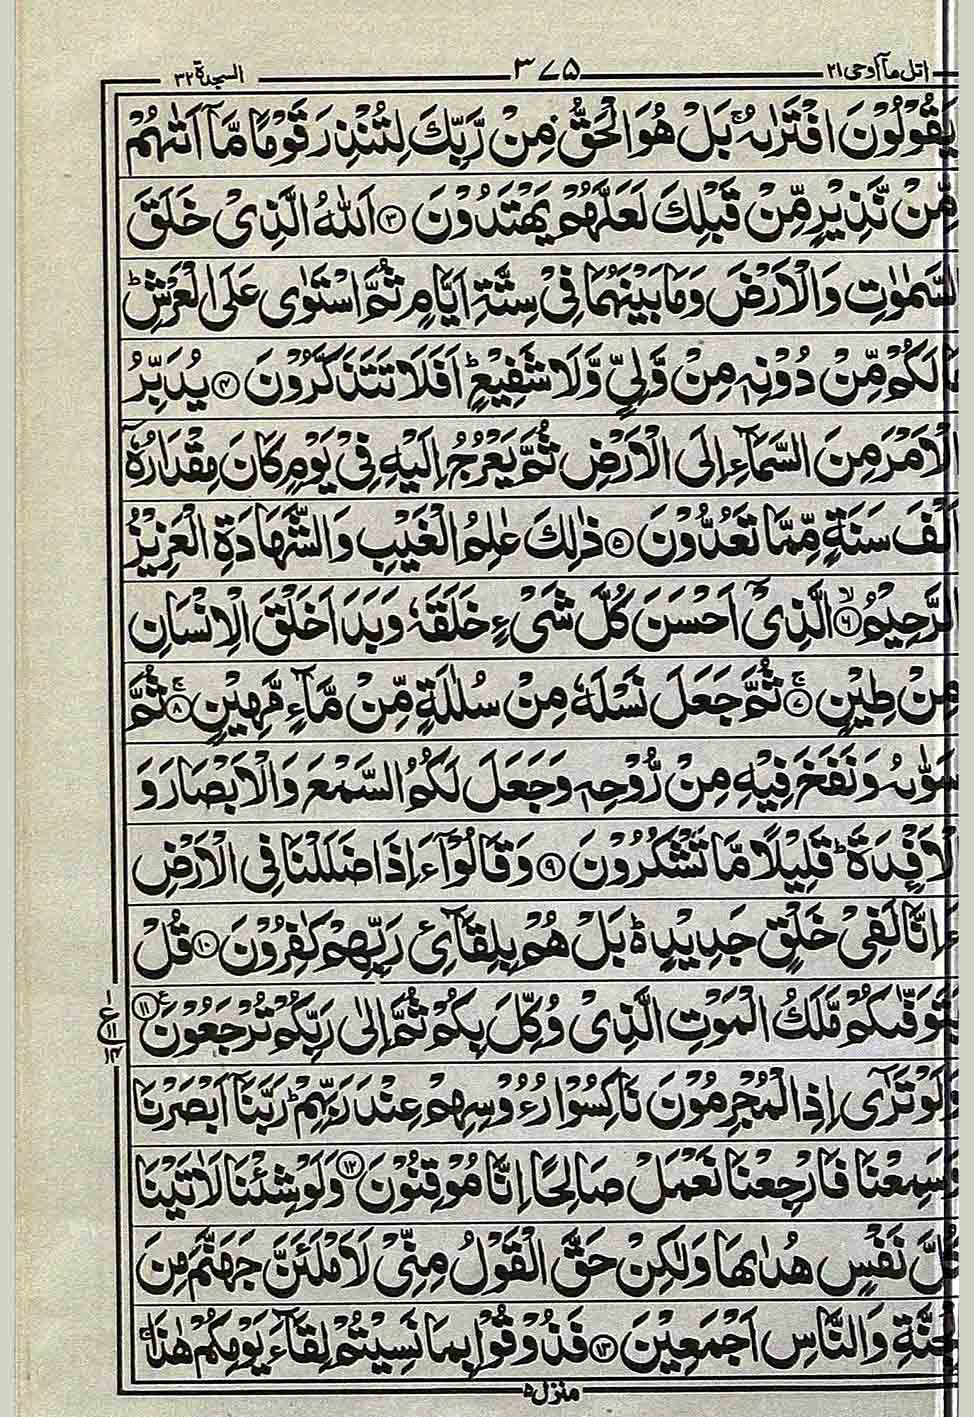 اتل مآ اوحی ۲۱ ۳۷۵ السجدة ۳۲
یَقُوۡلُوۡنَ افۡتَرٰىهُ ۚ بَلۡ هُوَ الۡحَقُّ مِنۡ رَّبِّكَ لِتُنۡذِرَ قَوۡمًا مَّاۤ اَتٰىهُمۡ
مِّنۡ نَّذِیۡرٍ مِّنۡ قَبۡلِكَ لَعَلَّهُمۡ یَهۡتَدُوۡنَ ﴿۳﴾ اَللّٰهُ الَّذِیۡ خَلَقَ
السَّمٰوٰتِ وَالۡاَرۡضَ وَمَا بَیۡنَهُمَا فِیۡ سِتَّةِ اَیَّامٍ ثُمَّ اسۡتَوٰی عَلَی الۡعَرۡشِ ؕ
مَا لَكُمۡ مِّنۡ دُوۡنِهٖ مِنۡ وَّلِیٍّ وَّلَا شَفِیۡعٍ ؕ اَفَلَا تَتَذَكَّرُوۡنَ ﴿۴﴾ یُدَبِّرُ
الۡاَمۡرَ مِنَ السَّمَآءِ اِلَی الۡاَرۡضِ ثُمَّ یَعۡرُجُ اِلَیۡهِ فِیۡ یَوۡمٍ كَانَ مِقۡدَارُهٗۤ
اَلۡفَ سَنَةٍ مِّمَّا تَعُدُّوۡنَ ﴿۵﴾ ذٰلِكَ عٰلِمُ الۡغَیۡبِ وَالشَّهَادَةِ الۡعَزِیۡزُ
الرَّحِیۡمُ ﴿۶﴾ ۙ الَّذِیۡۤ اَحۡسَنَ كُلَّ شَیۡءٍ خَلَقَهٗ وَبَدَاَ خَلۡقَ الۡاِنۡسَانِ
مِنۡ طِیۡنٍ ﴿۷﴾ ۚ ثُمَّ جَعَلَ نَسۡلَهٗ مِنۡ سُلٰلَةٍ مِّنۡ مَّآءٍ مَّهِیۡنٍ ﴿۸﴾ ۚ ثُمَّ
سَوّٰىهُ وَنَفَخَ فِیۡهِ مِنۡ رُّوۡحِهٖ وَجَعَلَ لَكُمُ السَّمۡعَ وَالۡاَبۡصَارَ وَ
الۡاَفۡـِٕدَةَ ؕ قَلِیۡلًا مَّا تَشۡكُرُوۡنَ ﴿۹﴾ وَقَالُوۡۤا ءَاِذَا ضَلَلۡنَا فِی الۡاَرۡضِ
ءَاِنَّا لَفِیۡ خَلۡقٍ جَدِیۡدٍ ؕ۬ بَلۡ هُمۡ بِلِقَآئِ رَبِّهِمۡ كٰفِرُوۡنَ ﴿۱۰﴾ قُلۡ
یَتَوَفّٰىكُمۡ مَّلَكُ الۡمَوۡتِ الَّذِیۡ وُكِّلَ بِكُمۡ ثُمَّ اِلٰی رَبِّكُمۡ تُرۡجَعُوۡنَ ﴿۱۱﴾ ع
۱ ع ۱۱ ۱۴
وَلَوۡ تَرٰۤی اِذِ الۡمُجۡرِمُوۡنَ نَاكِسُوۡا رُءُوۡسِهِمۡ عِنۡدَ رَبِّهِمۡ ؕ رَبَّنَاۤ اَبۡصَرۡنَا
وَسَمِعۡنَا فَارۡجِعۡنَا نَعۡمَلۡ صَالِحًا اِنَّا مُوۡقِنُوۡنَ ﴿۱۲﴾ وَلَوۡ شِئۡنَا لَاٰتَیۡنَا
كُلَّ نَفۡسٍ هُدٰىهَا وَلٰكِنۡ حَقَّ الۡقَوۡلُ مِنِّیۡ لَاَمۡلَئَنَّ جَهَنَّمَ مِنَ
الۡجِنَّةِ وَالنَّاسِ اَجۡمَعِیۡنَ ﴿۱۳﴾ فَذُوۡقُوۡا بِمَا نَسِیۡتُمۡ لِقَآءَ یَوۡمِكُمۡ هٰذَا ۚ
منزل ۵